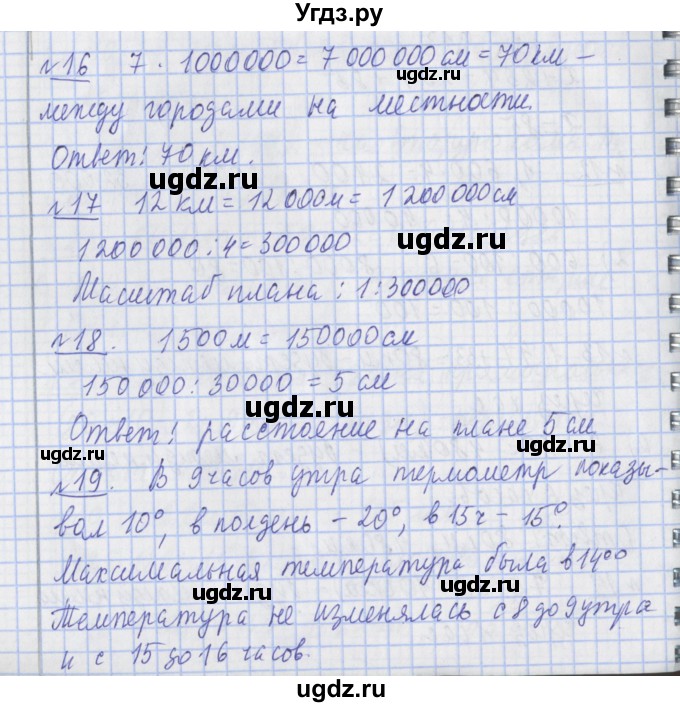 Угдз.ру
№16 7 · 1000000 = 7 000 000 см = 70 км –
ugdz.ru
между городами на местности.
Ответ: 70 км.
ugdz.ru
№17 12 км = 12 000 м = 1 200 000 см
ugdz.ru
1200 000 : 4 = 300000
Масштаб плана : 1:300000
ugdz.ru
№18. 1500 м = 150000 см
150 000 : 30000 = 5 см
ugdz.ru
Ответ: расстоение на плане 5 см
ugdz.ru ugdz.ru
№19. В 9 часов утра термометр показы-
вал 10°, в полдень – 20°, в 15 ч – 15°.
ugdz.ru
Максимальная температура была в 14⁰⁰
Температура не изменялась с 8 до 9 утра
ugdz.ru
и с 15 до 16 часов.
ugdz.ru